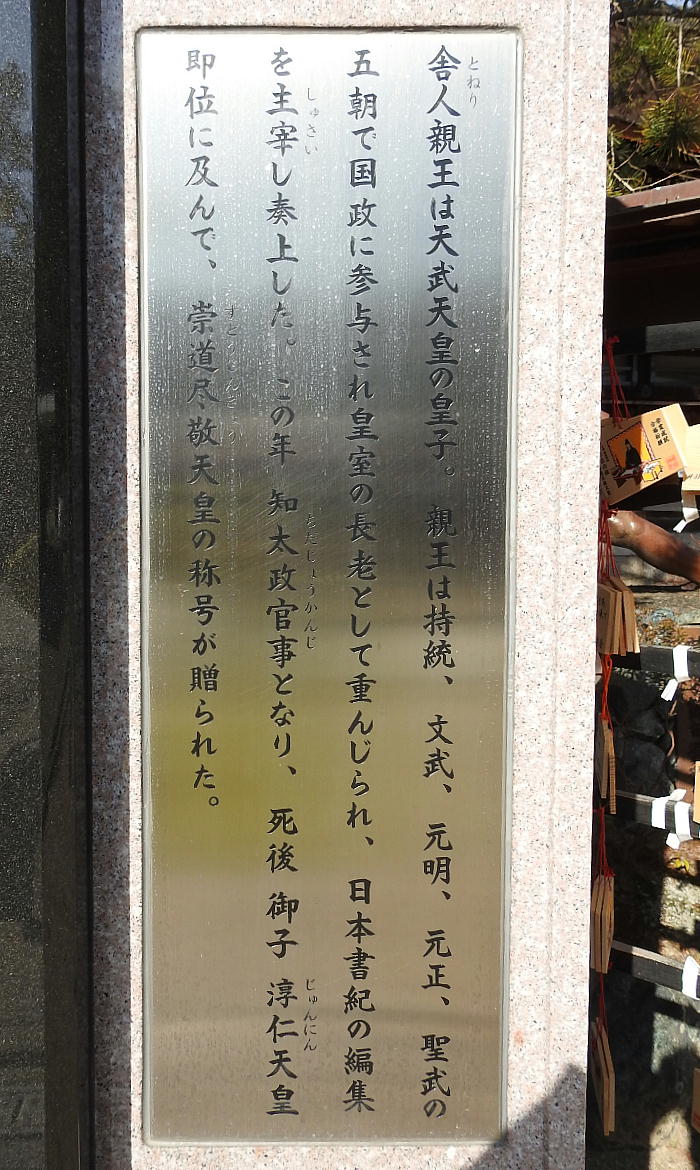 舎人親王は天武天皇の皇子。親王は持統、文武、元明、元正、聖武の
五朝で国政に参与され皇室の長老として重んじられ、日本書紀の編集
を主宰し奏上した。この年 知太政官事となり、死後 御子 淳仁天皇
即位に及んで、崇道尽敬天皇の称号が贈られた。
とねり
しゅさい
ちだじょうかんじ
じゅんにん